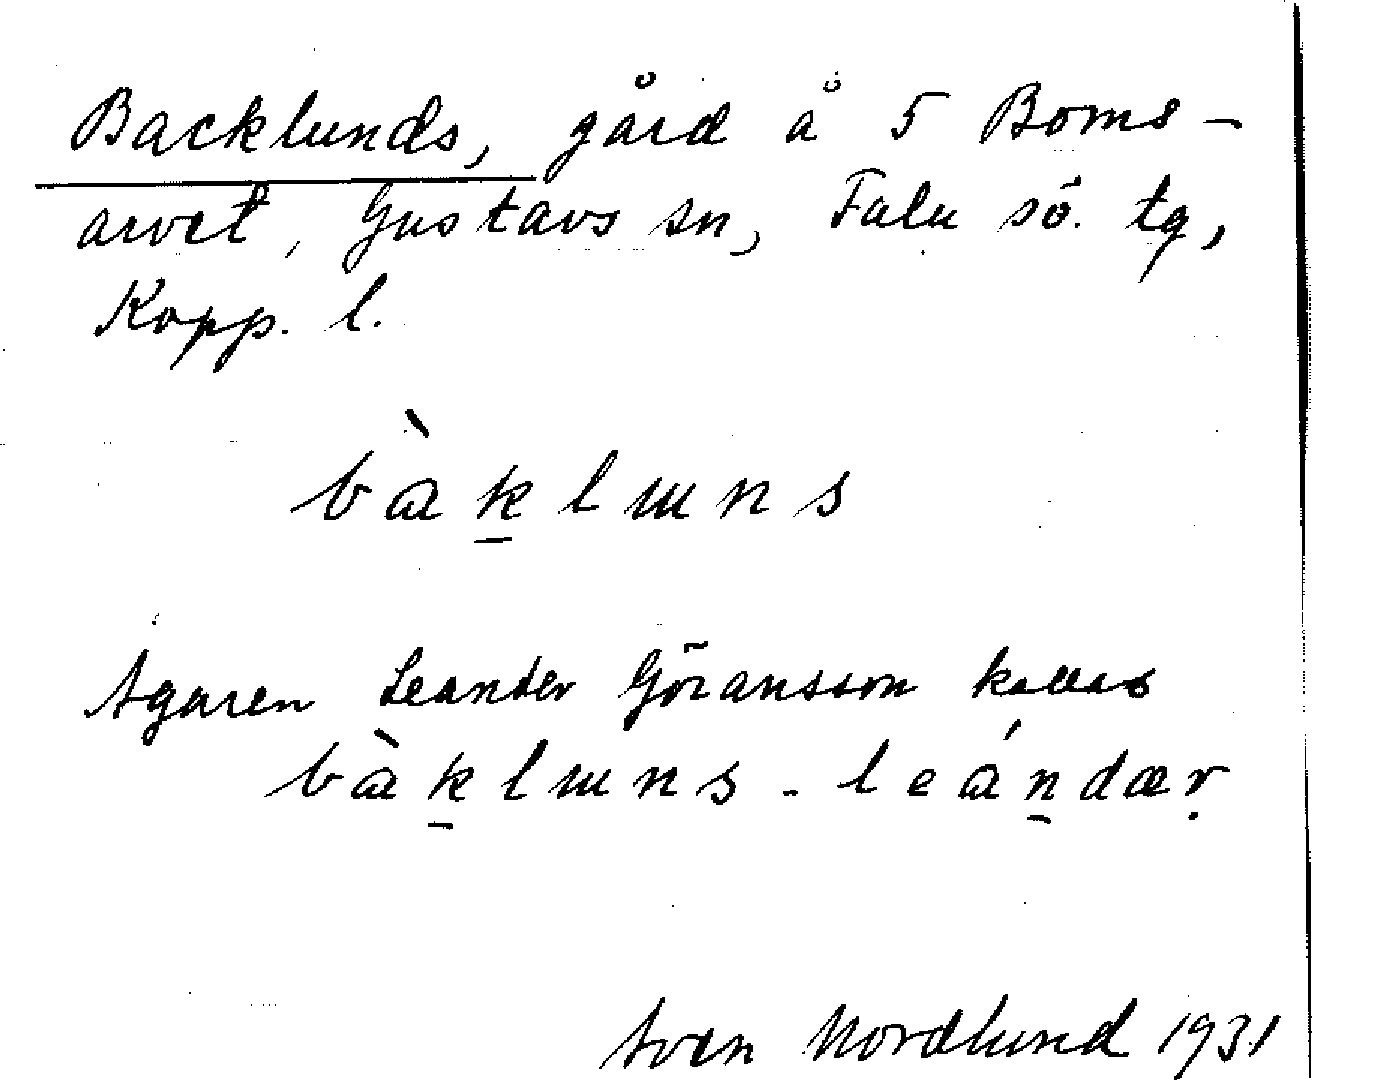 Backlunds, gård å 5 Boms-
arvet, Gustavs sn, Falu sö. tg,
Kopp. l.
bàk̠lɯns
Ägaren Leander Göransson kallas
bàk̠lɯns-leán̠dæṛ
Sven Nordlund 1931